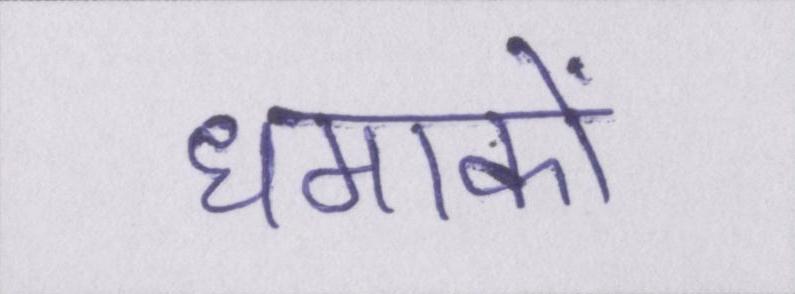 धमाकों